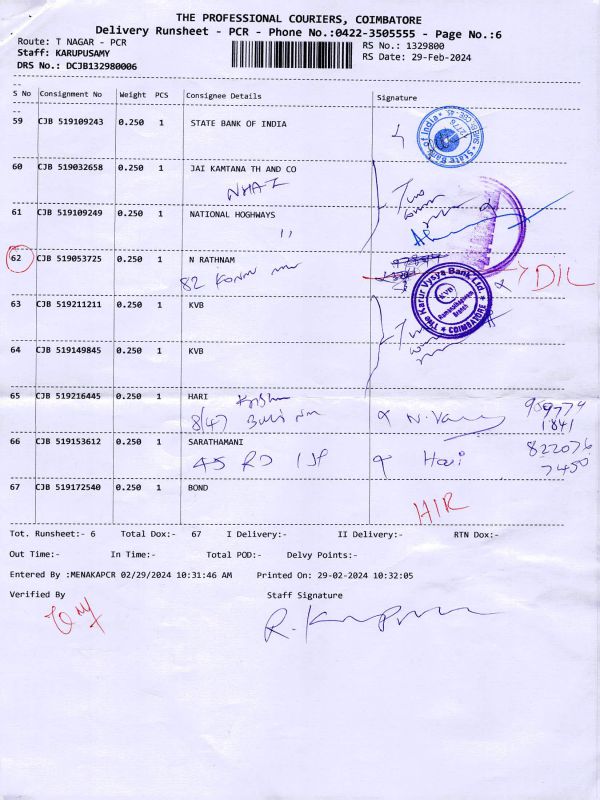 THE PROFESSIONAL COURIERS, COIMBATORE
Delivery Runsheet - PCR - Phone No.:0422-3505555 - Page No.:6
Route: T NAGAR - PCR
RS No.: 1329800
Staff: KARUPUSAMY
RS Date: 29-Feb-2024
DRS No.: DCJB132980006
S No Consignment No Weight PCS Consignee Details Signature
59 CJB 519109243 0.250 1 STATE BANK OF INDIA
State Bank of India
60 CJB 519032658 0.250 1 JAI KAMTANA TH AND CO
NHAI
61 CJB 519109249 0.250 1 NATIONAL HOGHWAYS
"
62 CJB 519053725 0.250 1 N RATHNAM
82
DIL
The Karur Vysya Bank Ltd.
KVB
Branch
COIMBATORE
63 CJB 519211211 0.250 1 KVB
64 CJB 519149845 0.250 1 KVB
65 CJB 519216445 0.250 1 HARI
8/47
959779
1841
66 CJB 519153612 0.250 1 SARATHAMANI
45 RD Hari
822076
7450
67 CJB 519172540 0.250 1 BOND
HIR
Tot. Runsheet:- 6 Total Dox:- 67 I Delivery:- II Delivery:- RTN Dox:-
Out Time:- In Time:- Total POD:- Delvy Points:-
Entered By :MENAKAPCR 02/29/2024 10:31:46 AM Printed On: 29-02-2024 10:32:05
Verified By Staff Signature